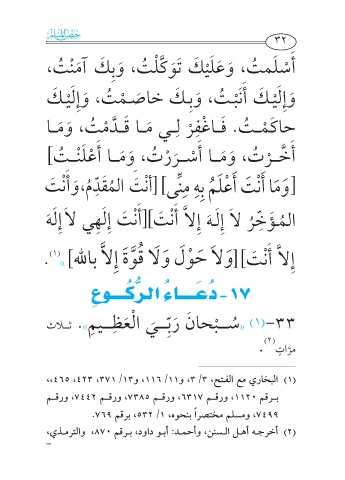 حصن المسلم
٣٢
أَسْلَمتُ، وَعَلَيْكَ تَوَكَّلْتُ، وَبِكَ آمَنْتُ،
وَإِلَيْكَ أَنَبْتُ، وَبِكَ خاصَمْتُ، وَإِلَيْكَ
حاكَمْتُ. فَاغْفِرْ لِي مَا قَدَّمْتُ، وَمَا
أَخَّرْتُ، وَمَا أَسْرَرْتُ، وَمَا أَعْلَنْتُ]
[وَمَا أَنْتَ أَعْلَمُ بِهِ مِنِّي] [أنْتَ المُقَدِّمُ، وَأَنْتَ
المُؤَخِّرُ لاَ إِلَهَ إِلاَّ أَنْتَ][أَنْتَ إِلَهِي لاَ إِلَهَ
إِلاَّ أَنْتَ] [وَلاَ حَوْلَ وَلاَ قُوَّةَ إِلاَّ باللهِ] »(١).
١٧- دُعَاءُ الرُّكُوعِ
٣٣-(١) «سُبْحانَ رَبِّيَ الْعَظِيمِ». ثلاث
مرَّاتٍ(٢).
(١) البخاري مع الفتح، ٣/ ٣، و١١/ ١١٦، و١٣/ ٣٧١، ٤٢٣، ٤٦٥،،
برقم ١١٢٠، ورقم ٦٣١٧، ورقم ٧٣٨٥، ورقم ٧٤٤٢، ورقم
٧٤٩٩، ومسلم مختصراً بنحوه، ١/ ٥٣٢، برقم ٧٦٩.
(٢) أخرجه أهل السنن، وأحمد: أبو داود، برقم ٨٧٠، والترمذي،